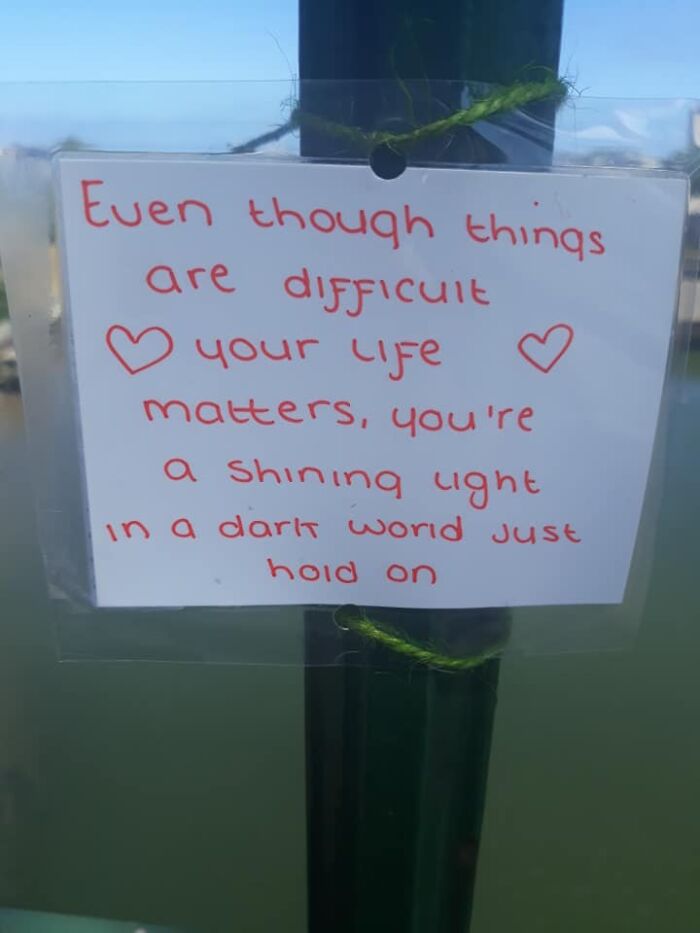 Even though things
are difficult
your life
matters, you're
a shining light
in a dark world just
hold on